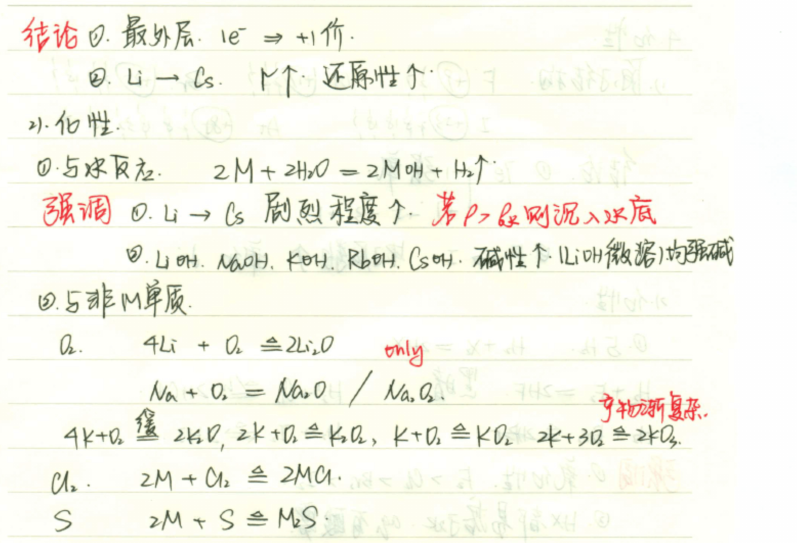 结论 ①. 最外层. 1e⁻ ⇒ +1价.
②. Li → Cs. r↑. 还原性↑.
2). 化性.
①.与水反应. 2M + 2H₂O = 2MOH + H₂↑.
强调 ①. Li → Cs 剧烈程度↑. 若ρ>ρ水则沉入水底
②. LiOH. NaOH. KOH. RbOH. CsOH. 碱性↑. (LiOH微溶)均强碱
②.与非M单质.
O₂. 4Li + O₂ ≙ 2Li₂O only
Na + O₂ = Na₂O / Na₂O₂
产物渐复杂.
4K+O₂ 缓≙ 2K₂O, 2K+O₂≙K₂O₂, K+O₂≙KO₂ 2K+3O₂≙2KO₃.
Cl₂. 2M + Cl₂ ≙ 2MCl.
S 2M + S ≙ M₂S.